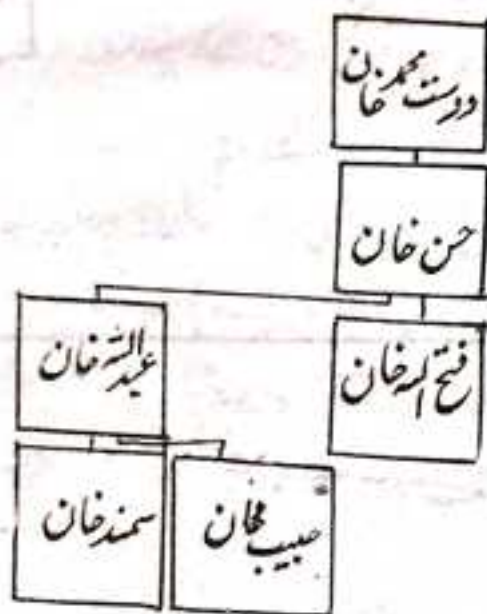 دوست محمد خان
حسن خان
فتح اللہ خان
عبداللہ خان
حبیب خان
سمندر خان